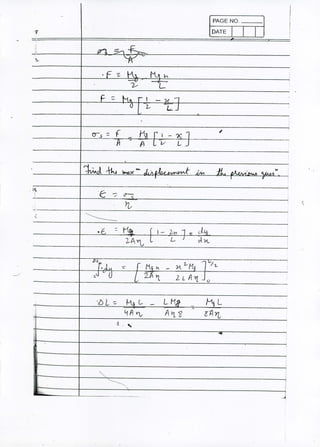 PAGE NO.
DATE
σ = F/A
F = Mg/2 - Mgx/L
F = Mg [1/2 - x/L]
σ = F/A = Mg/A [1/2 - x/L]
Find the max^m displacement in the previous ques^n.
ϵ = σ/η
ϵ = Mg/2Aη [1 - 2x/L] = dy/dx
∫dy = [Mgx/2Aη - x²Mg/2LAη]₀^L/2
ΔL = MgL/4Aη - LMg/Aη8 = MgL/8Aη